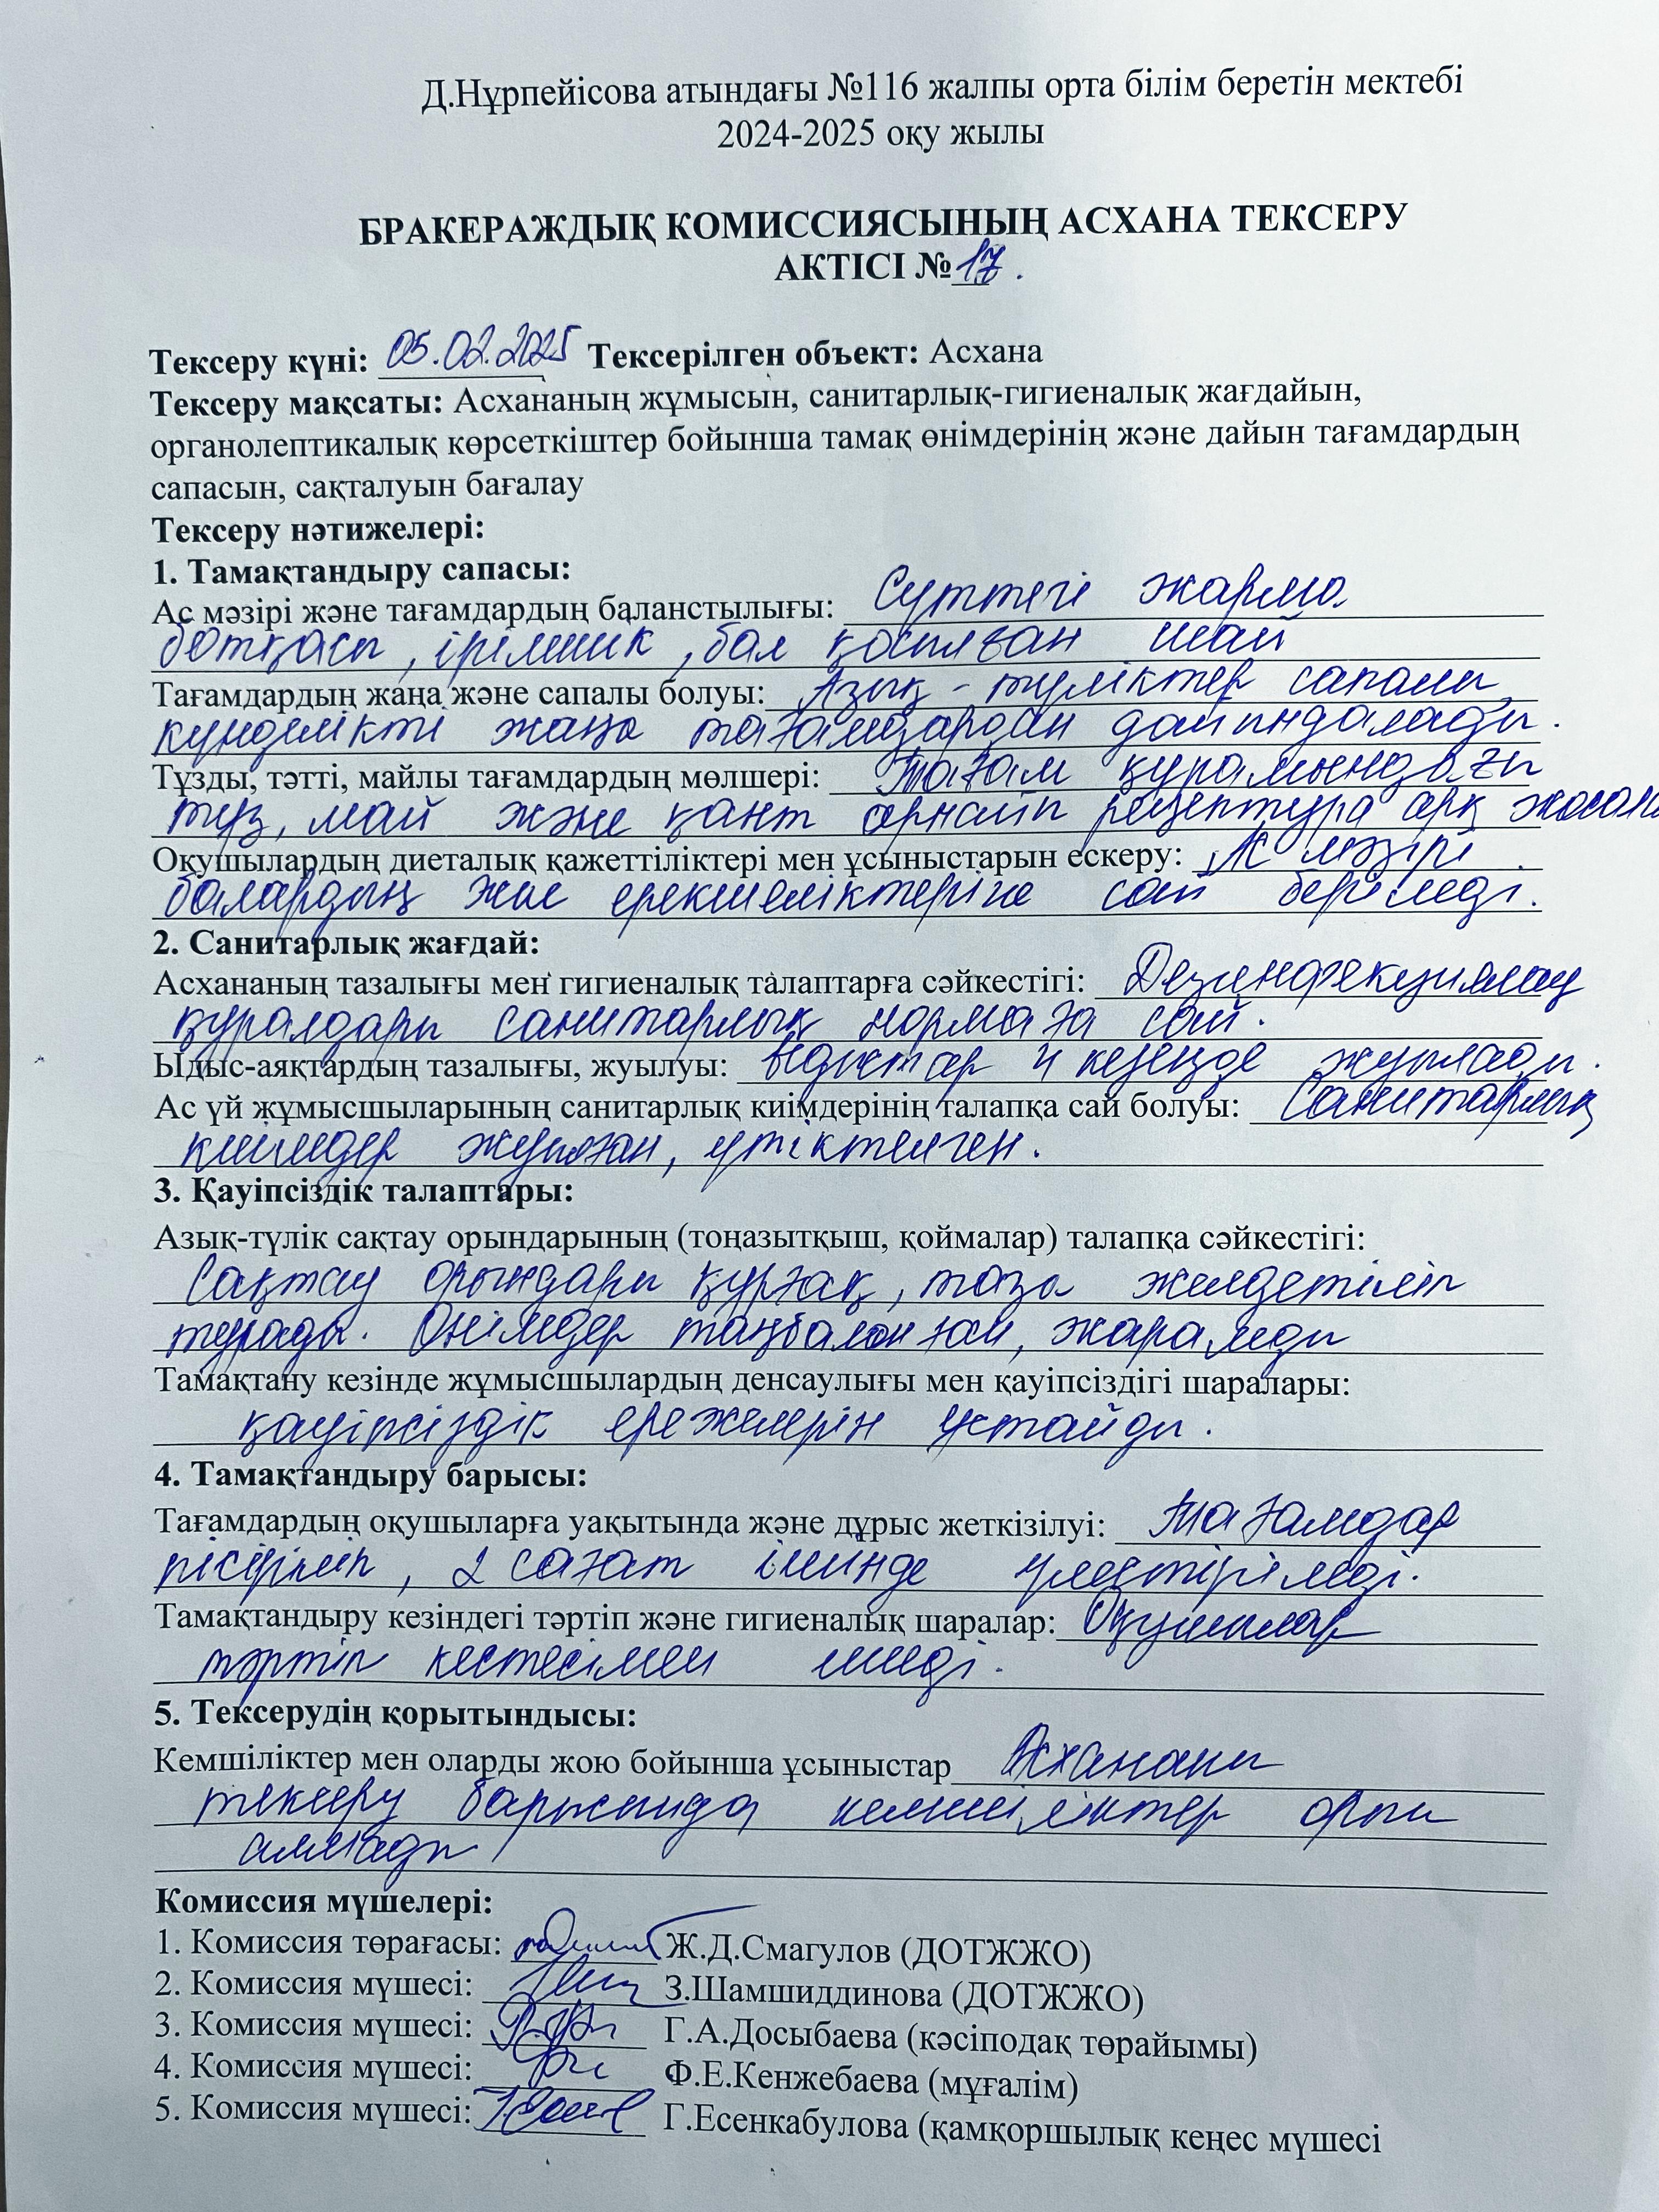 Д.Нұрпейісова атындағы №116 жалпы орта білім беретін мектебі
2024-2025 оқу жылы
БРАКЕРАЖДЫҚ КОМИССИЯСЫНЫҢ АСХАНА ТЕКСЕРУ
АКТІСІ № 17.
Тексеру күні: 05.02.2025 Тексерілген объект: Асхана
Тексеру мақсаты: Асхананың жұмысын, санитарлық-гигиеналық жағдайын,
органолептикалық көрсеткіштер бойынша тамақ өнімдерінің және дайын тағамдардың
сапасын, сақталуын бағалау
Тексеру нәтижелері:
1. Тамақтандыру сапасы:
Ас мәзірі және тағамдардың баланстылығы: Сүттегі жарма
ботқасы, ірімшік, бал қосылған шай
Тағамдардың жаңа және сапалы болуы: Азық-түліктер сапалы,
күнделікті жаңа тағамдардан дайындалады.
Тұзды, тәтті, майлы тағамдардың мөлшері: Тағам құрамындағы
тұз, май және қант арнайы рецептура арқ
Оқушылардың диеталық қажеттіліктері мен ұсыныстарын ескеру: Ас мәзірі
балардың жас ерекшеліктеріне сай беріледі.
2. Санитарлық жағдай:
Асхананың тазалығы мен гигиеналық талаптарға сәйкестігі: Дезинфекциялау
құралдары санитарлық нормаға сай.
Ыдыс-аяқтардың тазалығы, жуылуы: Ыдыстар 4 кезеңде жуылады.
Ас үй жұмысшыларының санитарлық киімдерінің талапқа сай болуы: Санитарлық
киімдер жуылған, үтіктелген.
3. Қауіпсіздік талаптары:
Азық-түлік сақтау орындарының (тоңазытқыш, қоймалар) талапқа сәйкестігі:
Сақтау орындары құрғақ, таза желдетіліп
тұрады. Өнімдер таңбаланған, жарамды
Тамақтану кезінде жұмысшылардың денсаулығы мен қауіпсіздігі шаралары:
қауіпсіздік ережелерін ұстайды.
4. Тамақтандыру барысы:
Тағамдардың оқушыларға уақытында және дұрыс жеткізілуі: Тағамдар
пісіріліп, 2 сағат ішінде үлестіріледі.
Тамақтандыру кезіндегі тәртіп және гигиеналық шаралар: Оқушылар
тәртіп кестесімен ішеді.
5. Тексерудің қорытындысы:
Кемшіліктер мен оларды жою бойынша ұсыныстар Асхананы
тексеру барысында кемшіліктер орын
алмады
Комиссия мүшелері:
1. Комиссия төрағасы: Ж.Д.Смагулов (ДОТЖЖО)
2. Комиссия мүшесі: З.Шамшиддинова (ДОТЖЖО)
3. Комиссия мүшесі: Г.А.Досыбаева (кәсіподақ төрайымы)
4. Комиссия мүшесі: Ф.Е.Кенжебаева (мұғалім)
5. Комиссия мүшесі: Г.Есенкабулова (қамқоршылық кеңес мүшесі